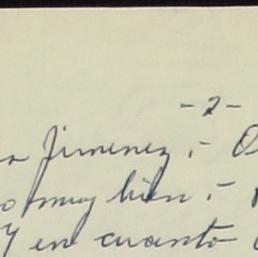 -2-
Jimenez,.-
muy bien.-
Y en cuanto